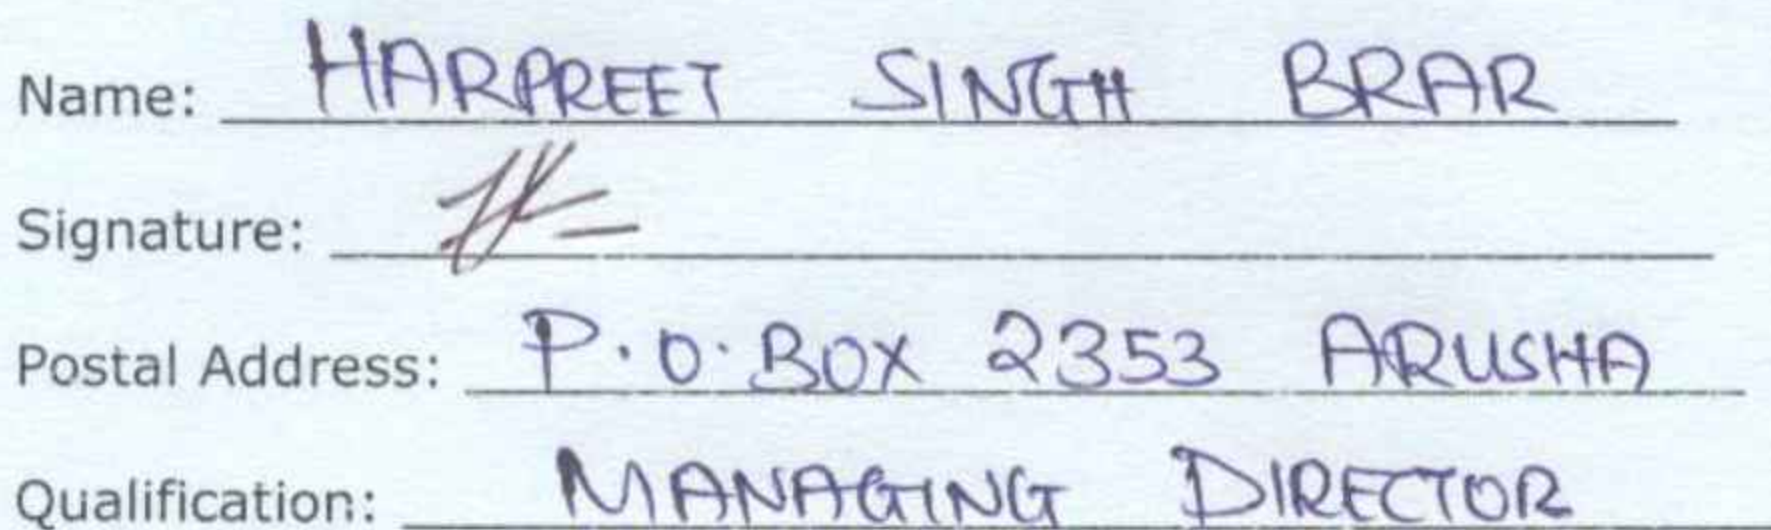 Name: HARPREET SINGH BRAR
Signature:
Postal Address: P.O. BOX 2353 ARUSHA
Qualification: MANAGING DIRECTOR